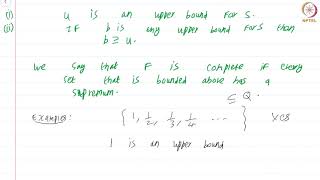 (i) u is an upper bound for S.
(ii) If b is any upper bound for S then
b ≥ u.
We say that F is complete if every
set that is bounded above has a
supremum.
⊆ Q.
Examples: {1, 1/2, 1/3, 1/4 ...} Yes
1 is an upper bound
NPTEL